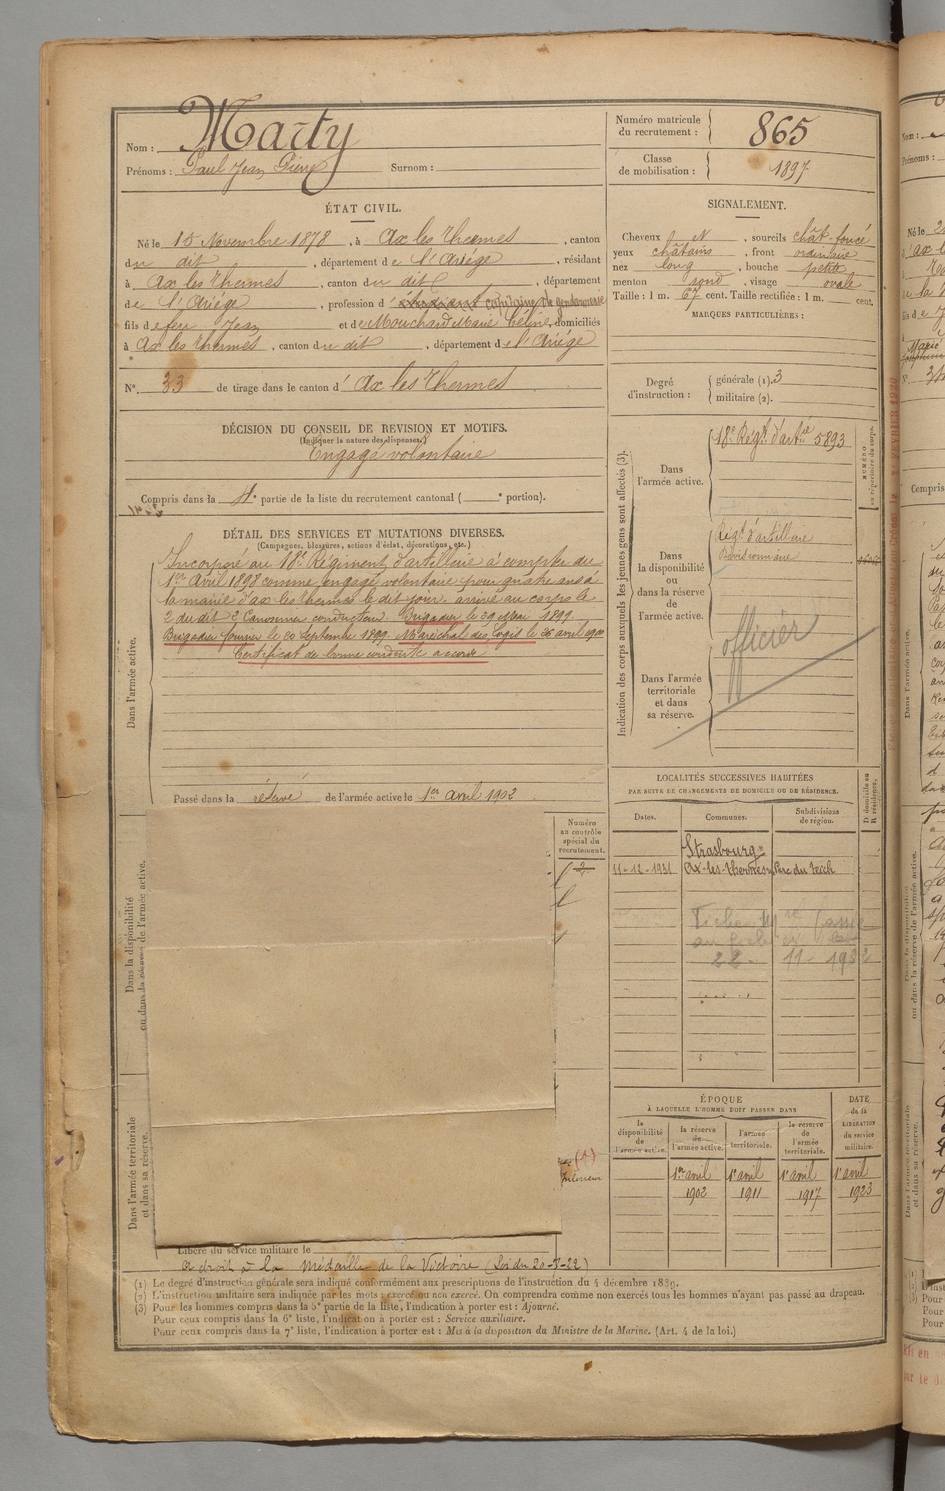 Nom : Marty
Prénoms : Paul Jean Pierre Surnom :
Numéro matricule du recrutement : 865
Classe de mobilisation : 1897
ÉTAT CIVIL.
Né le 15 Novembre 1878, à Ax les Thermes, canton
du dit, département de l'Ariège, résidant
à Ax les Thermes, canton du dit, département
de l'Ariège, profession d' étudiant capitaine de gendarmerie
fils de feu Jean et de Mouchard Marie Céline, domiciliés
à Ax les Thermes, canton du dit, département de l'Ariège
N° 33 de tirage dans le canton d' Ax les Thermes
SIGNALEMENT.
Cheveux N, sourcils chât-foncé
yeux châtains, front ordinaire
nez long, bouche petite
menton rond, visage ovale
Taille : 1 m. 67 cent. Taille rectifiée : 1 m. cent.
MARQUES PARTICULIÈRES :
Degré d'instruction : générale (1). 3
militaire (2).
DÉCISION DU CONSEIL DE REVISION ET MOTIFS.
(Indiquer la nature des dispenses.)
Engagé volontaire
Compris dans la 4e partie de la liste du recrutement cantonal ( e portion).
DÉTAIL DES SERVICES ET MUTATIONS DIVERSES.
(Campagnes, blessures, actions d'éclat, décorations, etc.)
Dans l'armée active.
Incorporé au 18e Régiment d'artillerie à compter du
1er Avril 1898 comme engagé volontaire pour quatre ans à
la mairie d'ax les thermes le dit jour. arrivé au corps le
2 du dit 2e Canonnier conducteur. Brigadier le
Brigadier fourrier le 20 Septembre 1899. Maréchal des Logis le 26 avril 1900
Certificat de bonne conduite accordé
Passé dans la réserve de l'armée active le 1er avril 1902.
Indication des corps auxquels les jeunes gens sont affectés (3).
Dans l'armée active.
18e Régt. d'artie 5893
NUMÉRO au répertoire du corps.
Dans la disponibilité ou dans la réserve de l'armée active.
Régt d'artillerie
Divisionnaire
officier
Dans l'armée territoriale et dans sa réserve.
LOCALITÉS SUCCESSIVES HABITÉES
PAR SUITE DE CHANGEMENTS DE DOMICILE OU DE RÉSIDENCE.
Dates. Communes. Subdivisions de région. D. domicile ou R. résidence.
Strasbourg
11-12-1931 Ax-les-thermes
22 - 11 - 1932
Dans la disponibilité ou dans la réserve de l'armée active.
Numéro au contrôle spécial du recrutement.
Dans l'armée territoriale et dans sa réserve.
(1)
ÉPOQUE
À LAQUELLE L'HOMME DOIT PASSER DANS
la disponibilité de l'armée active. la réserve de l'armée active. l'armée territoriale. la réserve de l'armée territoriale. DATE de la LIBÉRATION du service militaire.
1er avril 1er avril 1er avril 1er avril
1902 1911 1917 1923
Libéré du service militaire le
a droit à la Médaille de la Victoire (Loi du 20-7-22)
(1) Le degré d'instruction générale sera indiqué conformément aux prescriptions de l'instruction du 4 décembre 1889.
(2) L'instruction militaire sera indiquée par les mots : exercé ou non exercé. On comprendra comme non exercés tous les hommes n'ayant pas passé au drapeau.
(3) Pour les hommes compris dans la 5e partie de la liste, l'indication à porter est : Ajourné.
Pour ceux compris dans la 6e liste, l'indication à porter est : Service auxiliaire.
Pour ceux compris dans la 7e liste, l'indication à porter est : Mis à la disposition du Ministre de la Marine. (Art. 4 de la loi.)